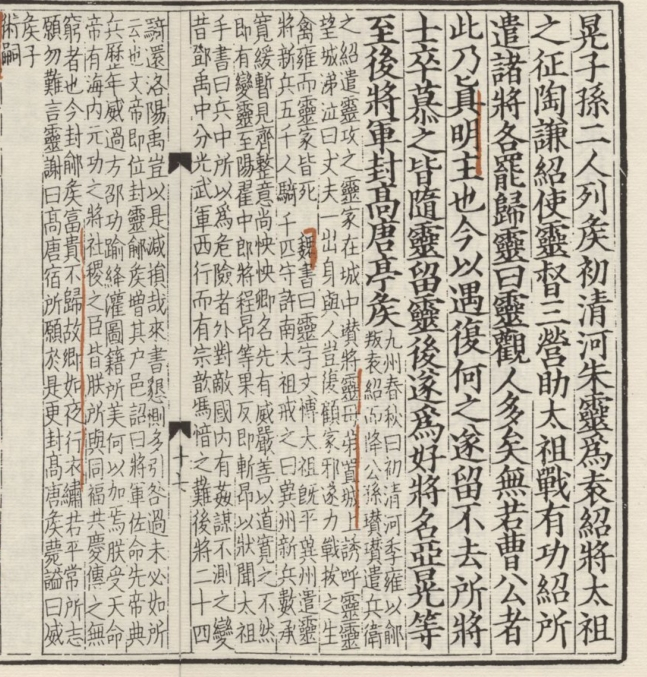 晃子孫二人列矦初清河朱靈為袁紹將太祖
之征陶謙紹使靈督三營助太祖戰有功紹所
遣諸將各罷歸靈曰靈觀人多矣無若曹公者
此乃眞明主也今以遇復何之遂留不去所將
士卒慕之皆隨靈留靈後遂為好將名亞晃等
至後將軍封高唐亭矦
九州春秋曰初清河季雍以鄃
叛袁紹而降公孫瓚瓚遣兵衛
之紹遣靈攻之靈家在城中瓚將靈母弟置城上誘呼靈靈
望城涕泣曰丈夫一出身與人豈復顧家邪遂力戰拔之生
禽雍而靈家皆死　魏書曰靈字文博太祖既平冀州遣靈
將新兵五千人騎千匹守許南太祖戒之曰冀州新兵數承
寬緩暫見齊整意尚怏怏卿名先有威嚴善以道寬之不然
即有變靈至陽翟中郎將程昂等果反即斬昂以狀聞太祖
手書曰兵中所以為危險者外對敵國內有姦謀不測之變
昔鄧禹中分光武軍西行而有宗歆馮愔之難後將二十四
十七
騎還洛陽禹豈以是減損哉來書懇惻多引咎過未必如所
云也文帝即位封靈鄃矦增其户邑詔曰將軍佐命先帝典
兵歷年威過方邵功踰絳灌圖籍所美何以加焉朕受天命
帝有海內元功之將社稷之臣皆朕所與同福共慶傳之無
窮者也今封鄃矦富貴不歸故鄉如夜行衣繡若平常所志
願勿難言靈謝曰高唐宿所願於是更封高唐矦薨謚曰威
矦子
術嗣